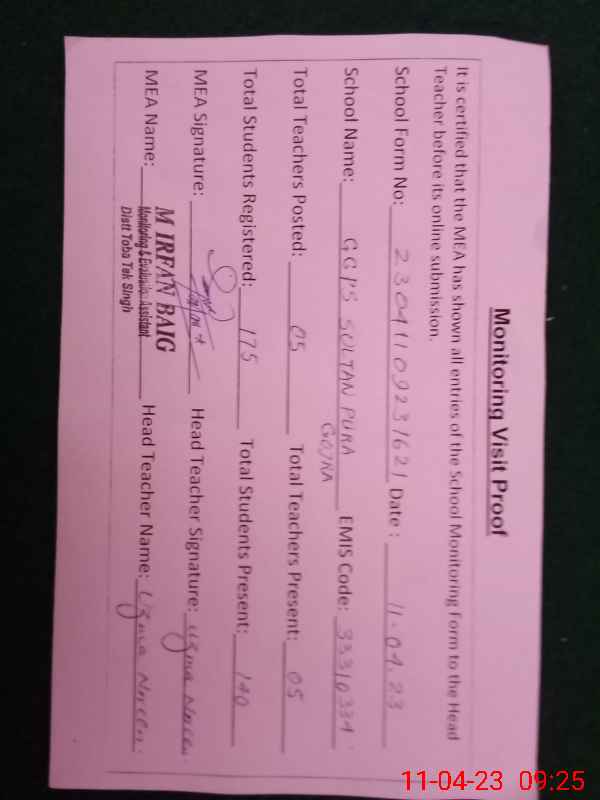 Monitoring Visit Proof
It is certified that the MEA has shown all entries of the School Monitoring Form to the Head
Teacher before its online submission.
School Form No: 23041109231621 Date : 11-04-23
School Name: GGPS SULTAN PURA GOJRA EMIS Code: 33310334
Total Teachers Posted: 05 Total Teachers Present: 05
Total Students Registered: 175 Total Students Present: 140
MEA Signature: Head Teacher Signature: Uzma Noreen
MEA Name: M IRFAN BAIG Head Teacher Name: Uzma Noreen
Monitoring & Evaluation Assistant
Distt Toba Tek Singh
11-04-23 09:25